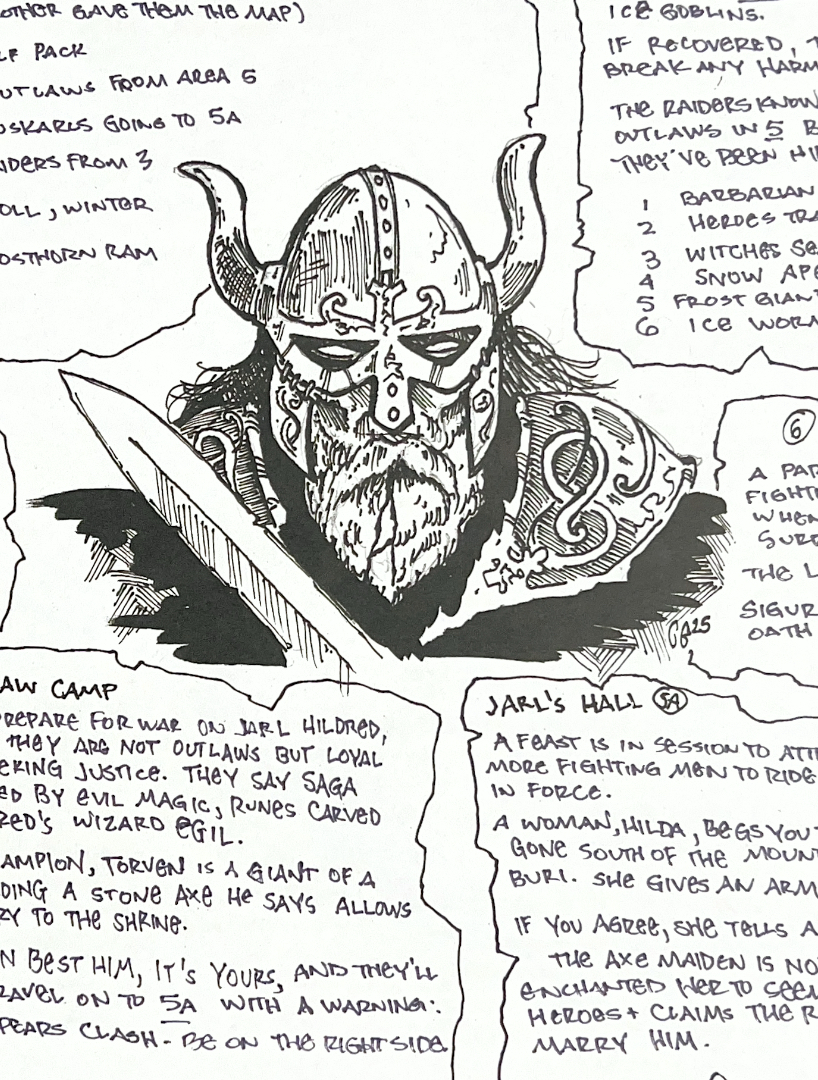 OTHER GAVE THEM THE MAP)
LF PACK
UTLAWS FROM AREA 5
USKARLS GOING TO 5A
IDERS FROM 3
OLL, WINTER
OSTHORN RAM
ICE GOBLINS.
IF RECOVERED, T
BREAK ANY HARM
THE RAIDERS KNOW
OUTLAWS IN 5 B
THEY'VE BEEN HI
1 BARBARIAN
2 HEROES TRA
3 WITCHES SE
4 SNOW APE
5 FROST GIANT
6 ICE WORM
6
A PAR
FIGHTI
WHEN
SURR
THE L
SIGUR
OATH
AW CAMP
PREPARE FOR WAR ON JARL HILDRED,
THEY ARE NOT OUTLAWS BUT LOYAL
ERING JUSTICE. THEY SAY SAGA
ED BY EVIL MAGIC, RUNES CARVED
RED'S WIZARD EGIL.
AMPION, TORVEN IS A GIANT OF A
DING A STONE AXE HE SAYS ALLOWS
RY TO THE SHRINE.
N BEST HIM, IT'S YOURS, AND THEY'LL
RAVEL ON TO 5A WITH A WARNING:
PEARS CLASH - BE ON THE RIGHT SIDE.
JARL'S HALL 5A
A FEAST IS IN SESSION TO ATT
MORE FIGHTING MEN TO RIDE
IN FORCE.
A WOMAN, HILDA, BEGS YOU T
GONE SOUTH OF THE MOUNT
BURI. SHE GIVES AN ARM
IF YOU AGREE, SHE TELLS A
THE AXE MAIDEN IS NO
ENCHANTED HER TO SEEM
HEROES + CLAIMS THE R
MARRY HIM.